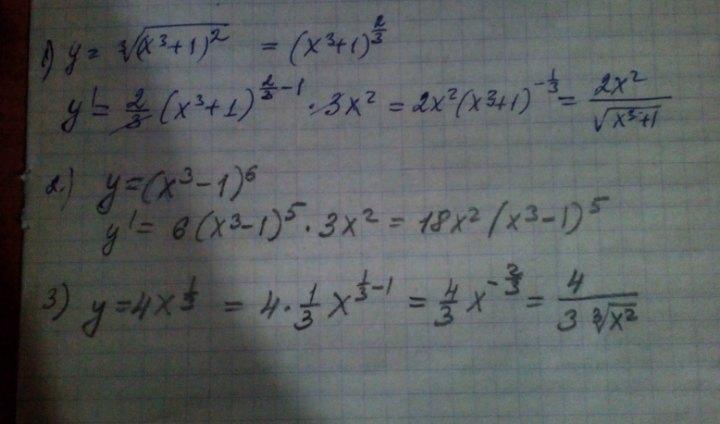 1) y = ∛(x³+1)² = (x³+1)^(2/3)
y' = 2/3 (x³+1)^(2/3 - 1) · 3x² = 2x²(x³+1)^(-1/3) = 2x²/√(x³+1)
2) y=(x³-1)⁶
y' = 6(x³-1)⁵ · 3x² = 18x²(x³-1)⁵
3) y=4x^(1/3) = 4·1/3 x^(1/3 - 1) = 4/3 x^(-2/3) = 4/(3 ∛x²)